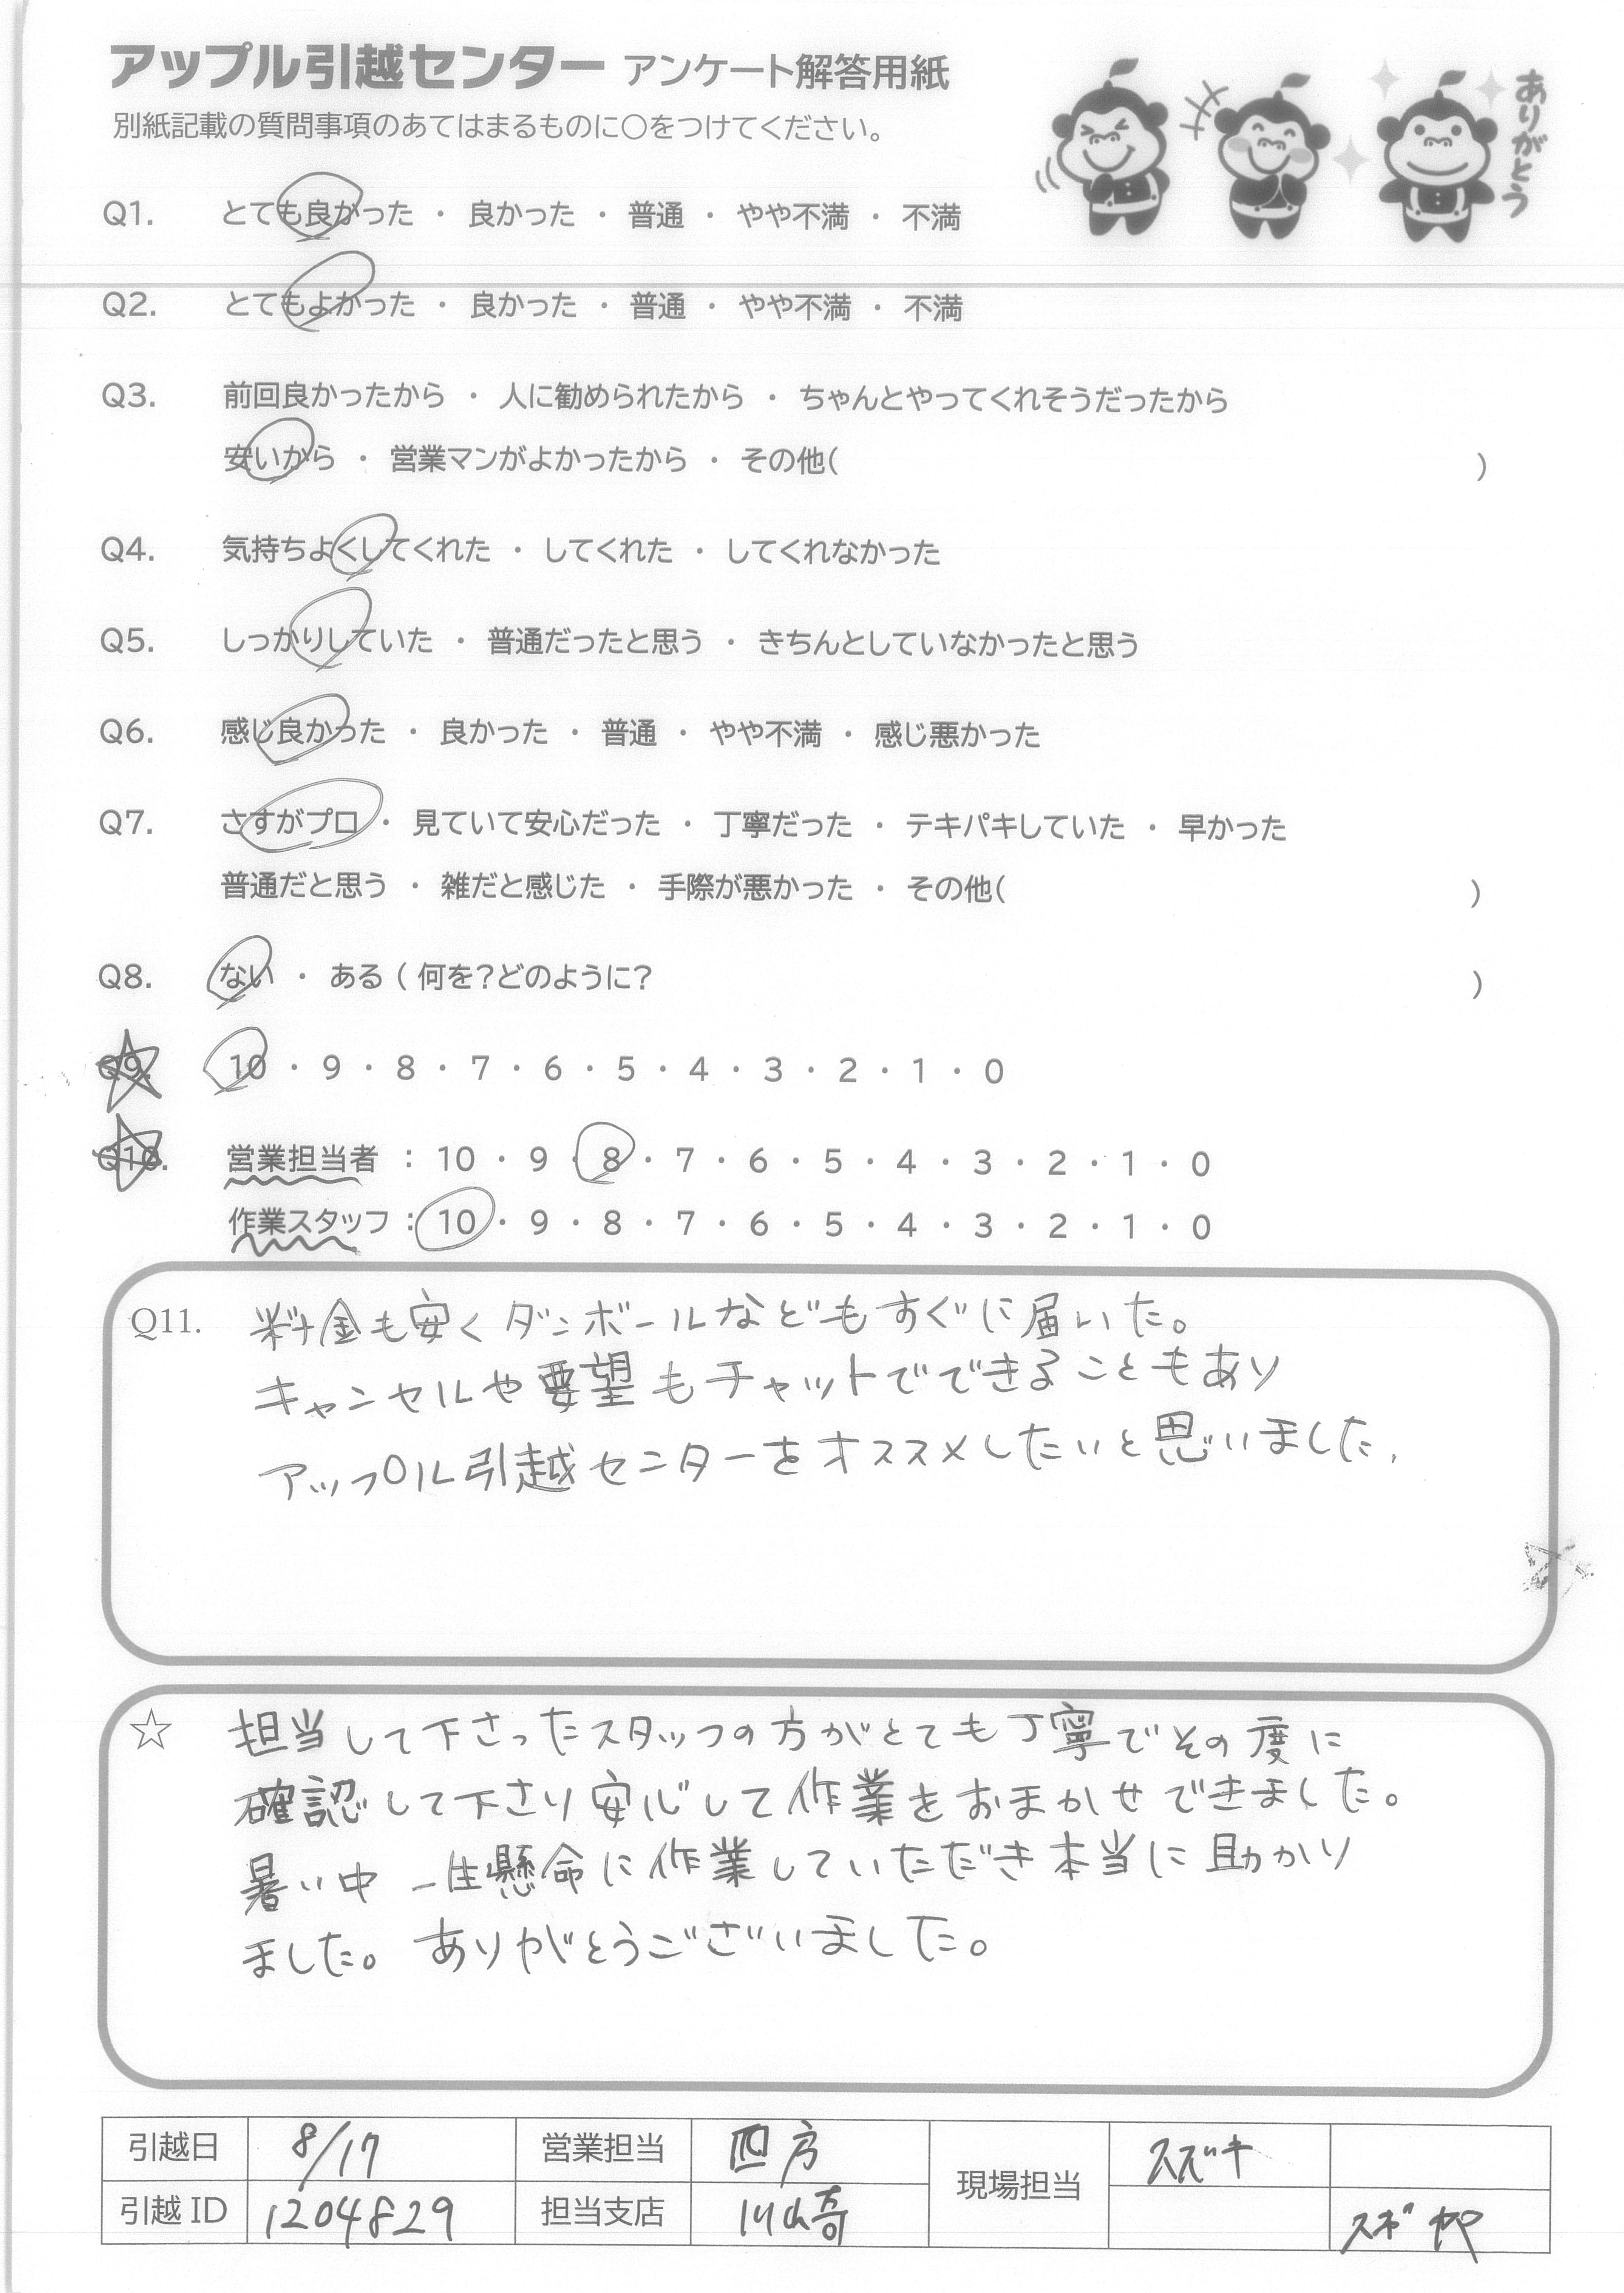 アップル引越センター アンケート解答用紙
別紙記載の質問事項のあてはまるものに〇をつけてください。
ありがとう
Q1. とても良かった ・ 良かった ・ 普通 ・ やや不満 ・ 不満
Q2. とてもよかった ・ 良かった ・ 普通 ・ やや不満 ・ 不満
Q3. 前回良かったから ・ 人に勧められたから ・ ちゃんとやってくれそうだったから
安いから ・ 営業マンがよかったから ・ その他( )
Q4. 気持ちよくしてくれた ・ してくれた ・ してくれなかった
Q5. しっかりしていた ・ 普通だったと思う ・ きちんとしていなかったと思う
Q6. 感じ良かった ・ 良かった ・ 普通 ・ やや不満 ・ 感じ悪かった
Q7. さすがプロ ・ 見ていて安心だった ・ 丁寧だった ・ テキパキしていた ・ 早かった
普通だと思う ・ 雑だと感じた ・ 手際が悪かった ・ その他( )
Q8. ない ・ ある ( 何を?どのように? )
Q9. 10 ・ 9 ・ 8 ・ 7 ・ 6 ・ 5 ・ 4 ・ 3 ・ 2 ・ 1 ・ 0
Q10. 営業担当者 : 10 ・ 9 ・ 8 ・ 7 ・ 6 ・ 5 ・ 4 ・ 3 ・ 2 ・ 1 ・ 0
作業スタッフ : 10 ・ 9 ・ 8 ・ 7 ・ 6 ・ 5 ・ 4 ・ 3 ・ 2 ・ 1 ・ 0
Q11. 料金も安くダンボールなどもすぐに届いた。
キャンセルや要望もチャットでできることもあり
アップル引越センターをオススメしたいと思いました.
☆ 担当して下さったスタッフの方がとても丁寧でその度に
確認して下さり安心して作業をおまかせできました。
暑い中 一生懸命に作業していただき本当に助かり
ました。ありがとうございました。
引越日 8/17 営業担当 四方 現場担当 スズキ
引越 ID 1204829 担当支店 川崎